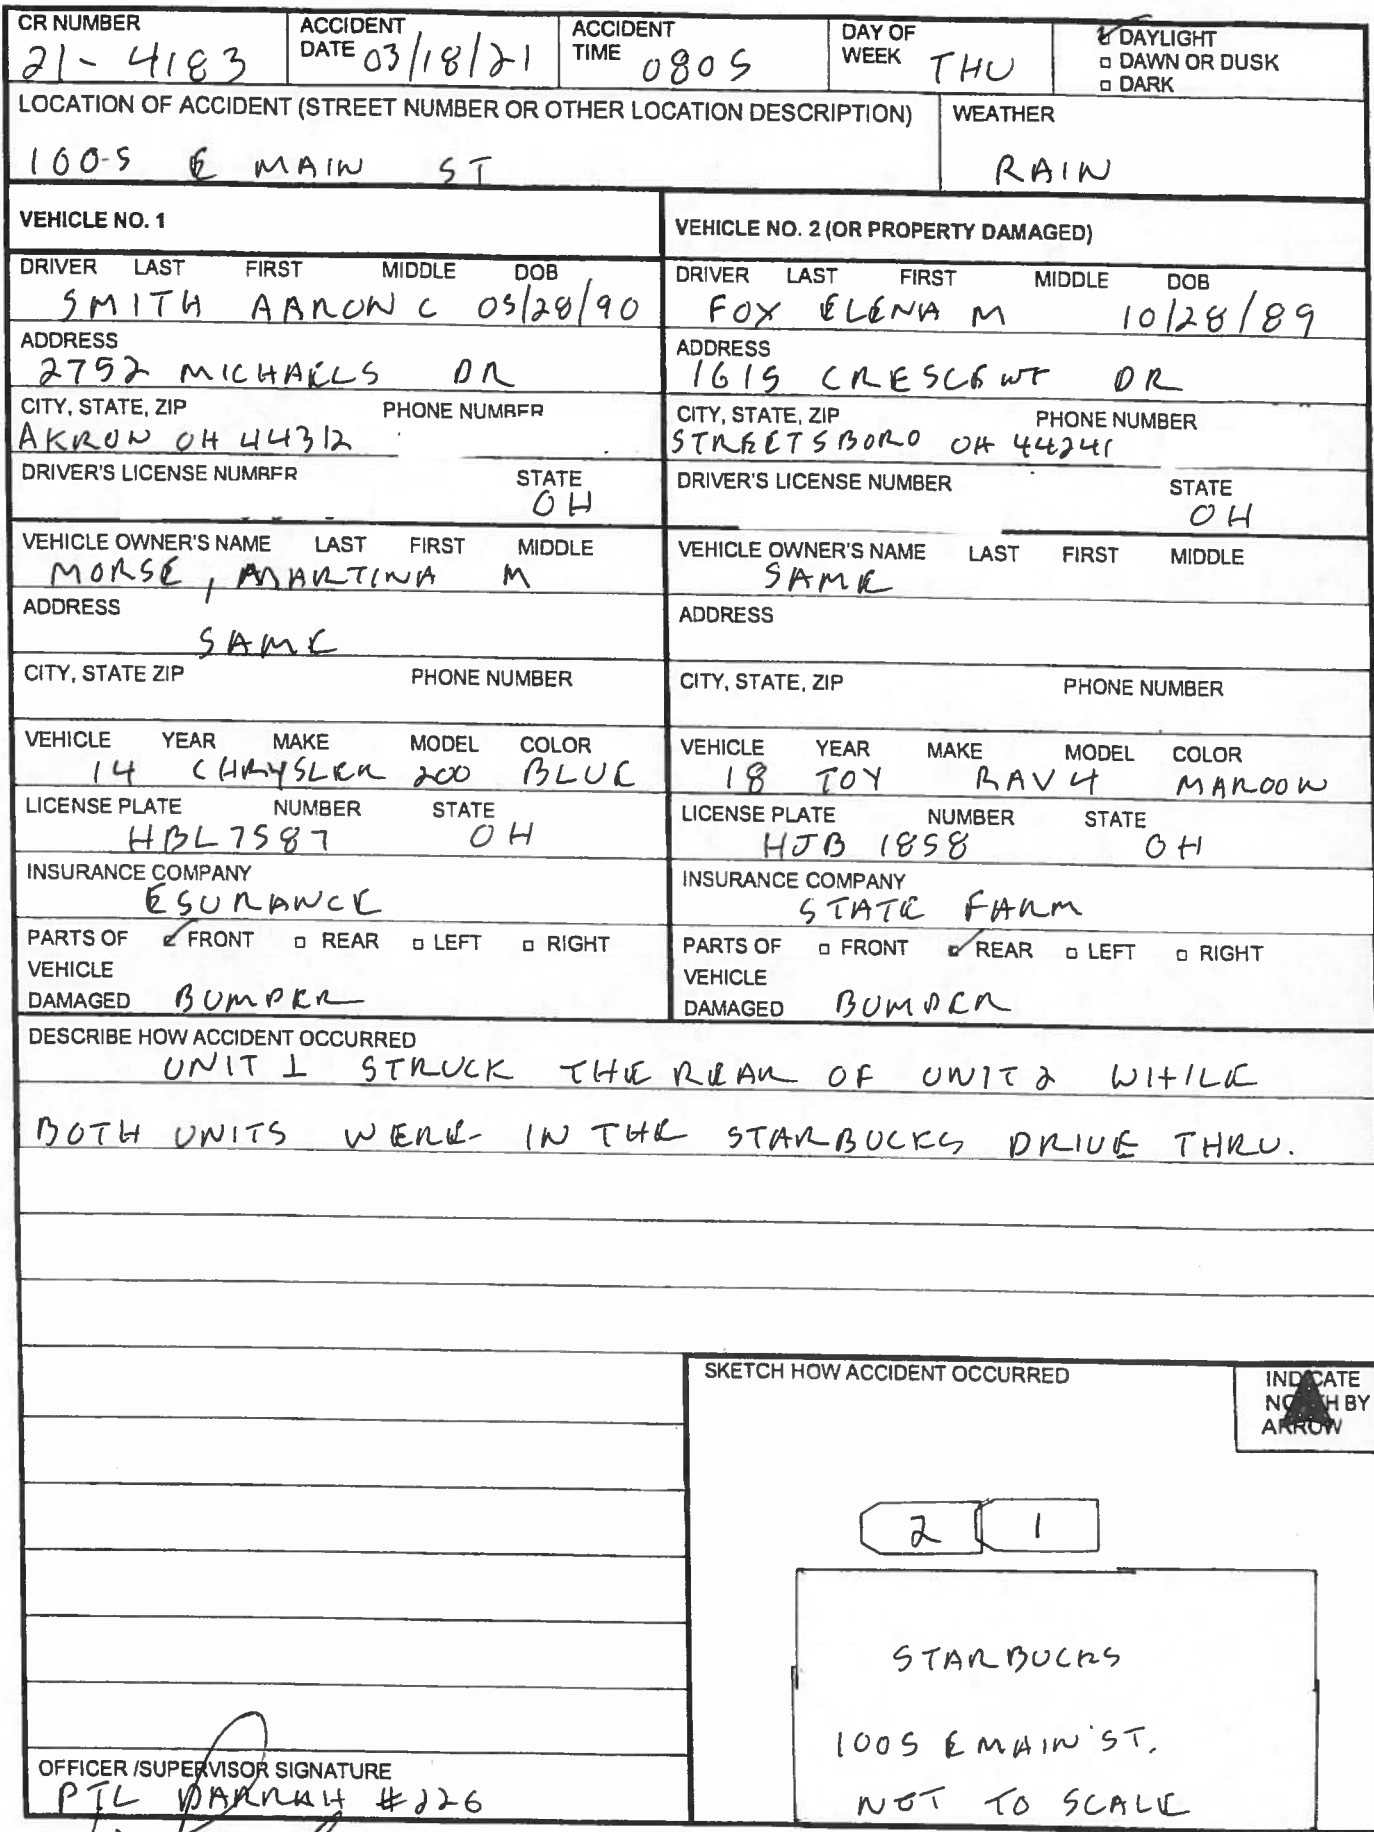 CR NUMBER
21-4183
ACCIDENT
DATE 03/18/21
ACCIDENT
TIME 0805
DAY OF
WEEK THU
DAYLIGHT
DAWN OR DUSK
DARK
LOCATION OF ACCIDENT (STREET NUMBER OR OTHER LOCATION DESCRIPTION)
1005 E MAIN ST
WEATHER
RAIN
VEHICLE NO. 1
DRIVER LAST FIRST MIDDLE DOB
SMITH AARON C 05/28/90
ADDRESS
2752 MICHAELS DR
CITY, STATE, ZIP PHONE NUMBER
AKRON OH 44312
DRIVER'S LICENSE NUMBER STATE
OH
VEHICLE OWNER'S NAME LAST FIRST MIDDLE
MORSE, MARTINA M
ADDRESS
SAME
CITY, STATE ZIP PHONE NUMBER
VEHICLE YEAR MAKE MODEL COLOR
14 CHRYSLER 200 BLUE
LICENSE PLATE NUMBER STATE
HBL7587 OH
INSURANCE COMPANY
ESURANCE
PARTS OF FRONT REAR LEFT RIGHT
VEHICLE
DAMAGED BUMPER
VEHICLE NO. 2 (OR PROPERTY DAMAGED)
DRIVER LAST FIRST MIDDLE DOB
FOX ELENA M 10/28/89
ADDRESS
1615 CRESCENT DR
CITY, STATE, ZIP PHONE NUMBER
STREETSBORO OH 44241
DRIVER'S LICENSE NUMBER STATE
OH
VEHICLE OWNER'S NAME LAST FIRST MIDDLE
SAME
ADDRESS
CITY, STATE, ZIP PHONE NUMBER
VEHICLE YEAR MAKE MODEL COLOR
18 TOY RAV4 MAROON
LICENSE PLATE NUMBER STATE
HJB 1858 OH
INSURANCE COMPANY
STATE FARM
PARTS OF FRONT REAR LEFT RIGHT
VEHICLE
DAMAGED BUMPER
DESCRIBE HOW ACCIDENT OCCURRED
UNIT 1 STRUCK THE REAR OF UNIT 2 WHILE
BOTH UNITS WERE IN THE STARBUCKS DRIVE THRU.
SKETCH HOW ACCIDENT OCCURRED
INDICATE
NORTH BY
ARROW
2 1
STARBUCKS
1005 E MAIN ST.
NOT TO SCALE
OFFICER /SUPERVISOR SIGNATURE
PTL DARRAH #226